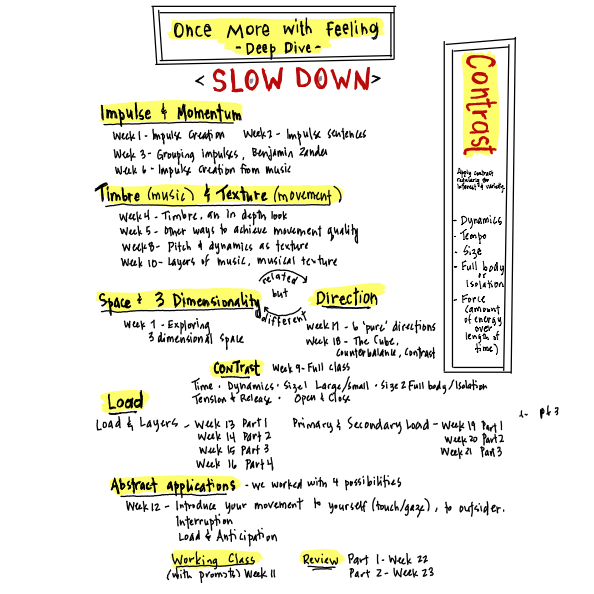 Once More with Feeling
- Deep Dive -
< SLOW DOWN >
Impulse & Momentum
Week 1 - Impulse Creation Week 2 - Impulse sentences
Week 3 - Grouping impulses, Benjamin Zander
Week 6 - Impulse creation from music
Timbre (music) & Texture (movement)
Week 4 - Timbre, an in depth look
Week 5 - Other ways to achieve movement quality
Week 8 - Pitch & dynamics as texture
Week 10 - Layers of music, musical texture
Space & 3 Dimensionality
Week 7 - Exploring
3 dimensional space
related
but
different
Direction
Week 17 - 6 'pure' directions
Week 18 - The Cube,
counterbalance, contrast
Contrast Week 9 - Full class
Time · Dynamics · Size 1 Large/Small · Size 2 Full body/Isolation
Tension & Release · Open & Close
Load
Load & Layers - Week 13 Part 1
Week 14 Part 2
Week 15 Part 3
Week 16 Part 4
Primary & Secondary Load - Week 19 Part 1
Week 20 Part 2
Week 21 Part 3
pt 3
Abstract applications - we worked with 4 possibilities
Week 12 - Introduce your movement to yourself (touch/gaze), to outsider.
Interruption
Load & Anticipation
Working Class
(with prompts) Week 11
Review Part 1 - Week 22
Part 2 - Week 23
Contrast
Apply contrast
regularly for
interest & variety
- Dynamics
- Tempo
- Size
- Full body
or
Isolation
- Force
(amount
of energy
over
length of
time)